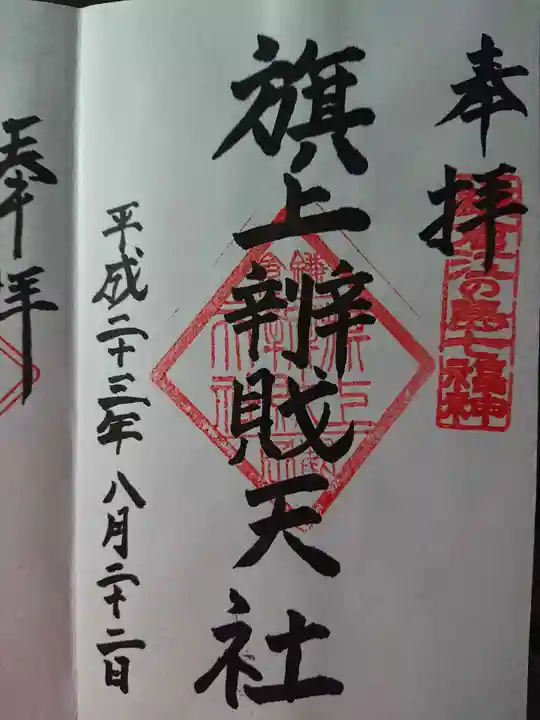 奉拝
鎌倉江の島七福神
旗上辨財天社
平成二十三年八月二十二日
奉拝